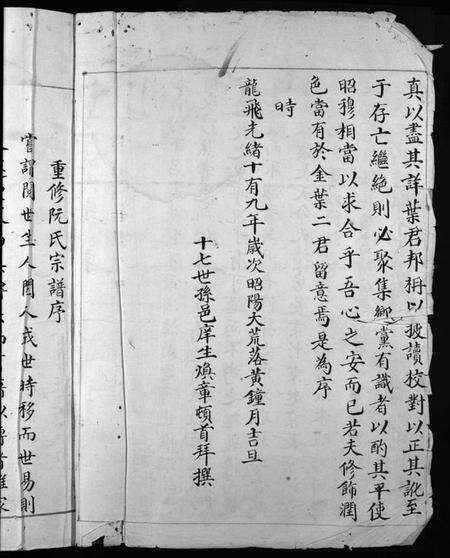 真以盡其詳葉君邦枏以披讀校對以正其訛至
于存亡繼絶則必聚集鄉黨有識者以酌其平使
昭穆相當以求合乎吾心之安而已若夫修飾潤
色當有於金葉二君留意焉是為序
時
龍飛光緒十有九年歲次昭陽大荒落黃鐘月吉旦
十七世孫邑庠生煥章頓首拜撰
重修阮氏宗譜序
嘗謂閱世生人閱人成世時移而世易則